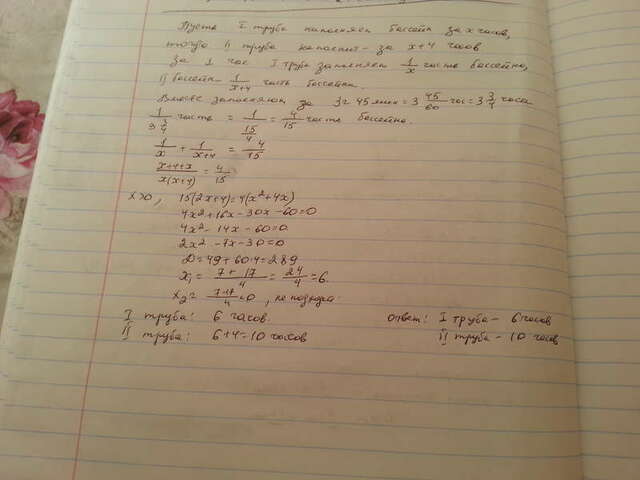 Пусть I труба наполняет бассейн за x часов,
тогда II труба наполнит - за x+4 часов
за 1 час I труба заполняет 1/x часть бассейна,
II бассейн 1/(x+4) часть бассейна.
Вместе заполняют за 3ч 45 мин = 3 45/60 час = 3 3/4 часа
1/(3 3/4) часть = 1/(15/4) = 4/15 часть бассейна.
1/x + 1/(x+4) = 4/15
(x+4+x)/(x(x+4)) = 4/15
x>0, 15(2x+4)=4(x²+4x)
4x²+16x-30x-60=0
4x²-14x-60=0
2x²-7x-30=0
D=49+60·4=289
x₁= (7+17)/4 = 24/4 = 6.
x₂= (7-17)/4 <0, не подходит.
I труба: 6 часов.
II труба: 6+4=10 часов
ответ: I труба - 6 часов
II труба - 10 часов